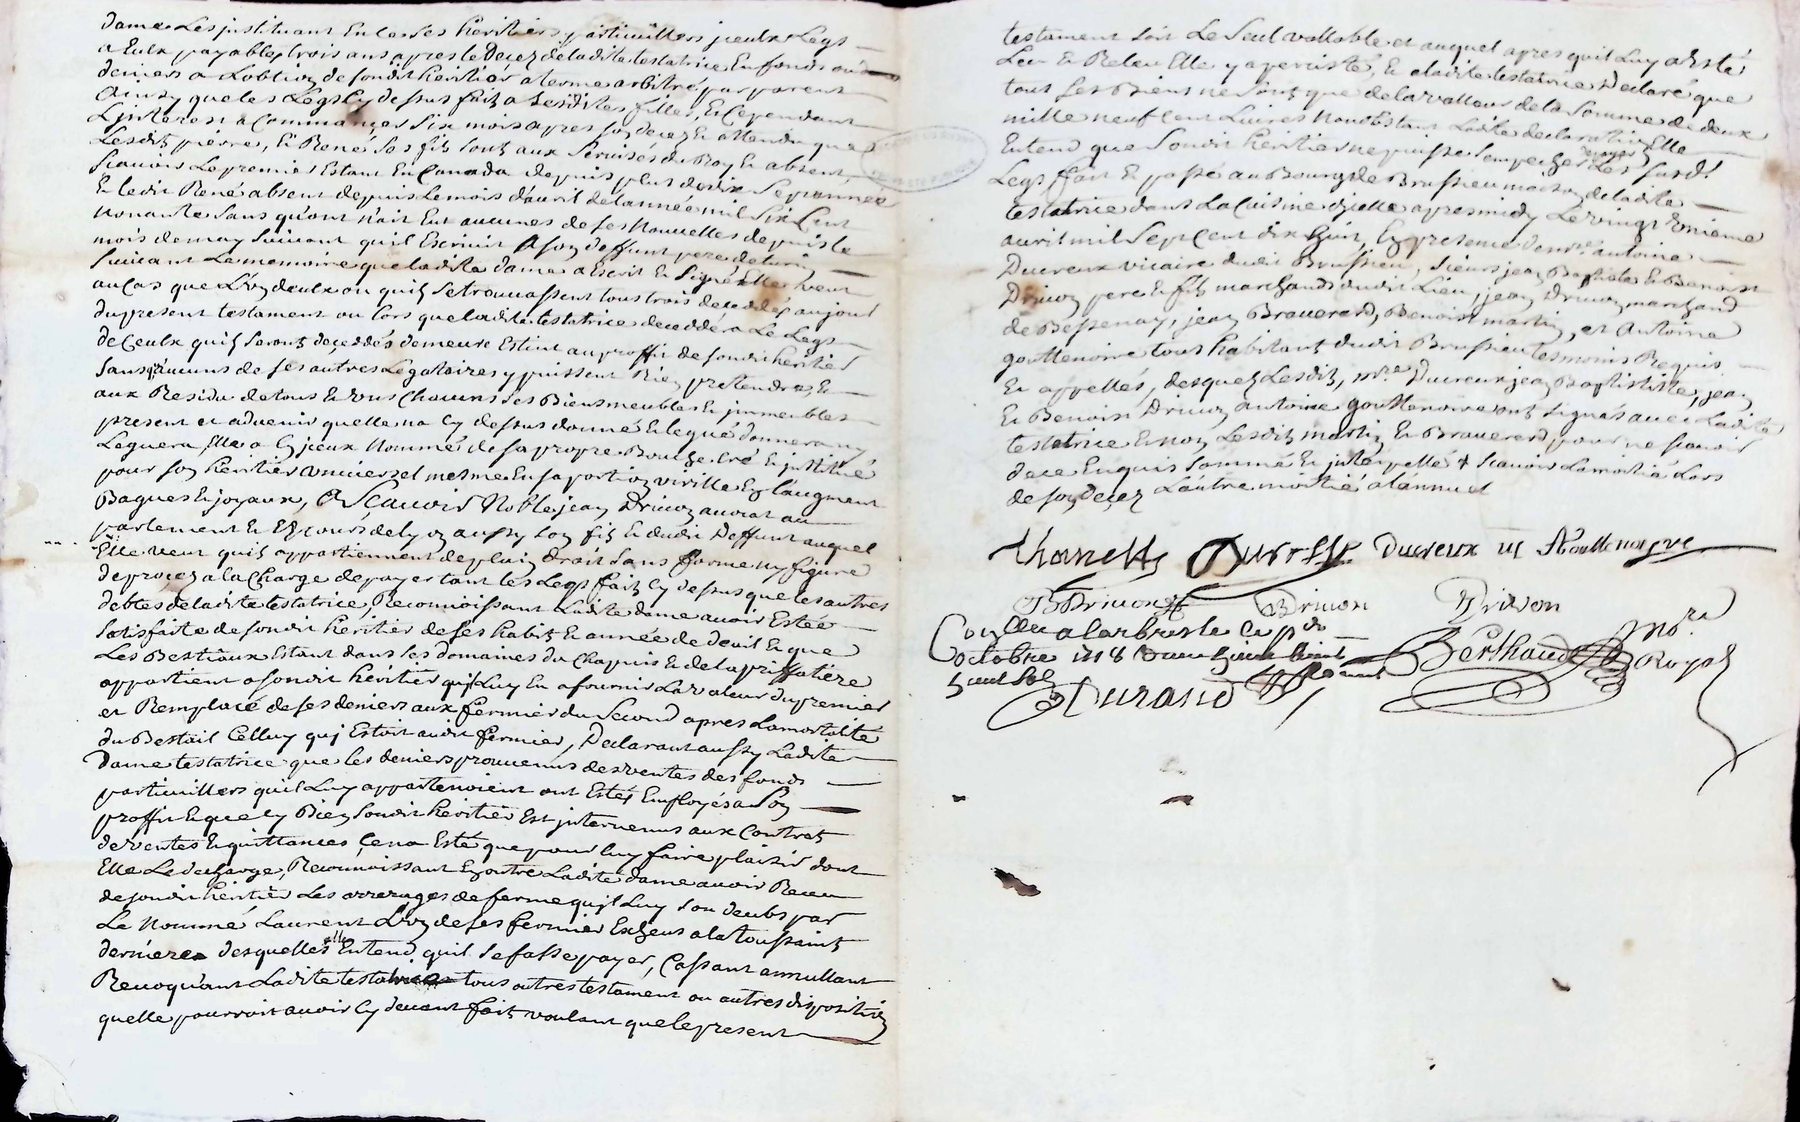 dame Les instituant En Ce ses heritiers particulliers jceulx Legs
a Eulx payables trois ans apres le Decez de ladite testatrice En fonds ou
deniers a Lobtion de sondit heritier a terme arbitré par parent
Ainsy que les Legs Cy dessus faitz a sesdites filles, Et Cependant
Linterest a Commancer six mois apres son decez Et attendu que
Lesditz pierre, Et René ses filz sontz aux services du Roy Et absent,
scauoir Le premier Estant En Canada depuis plus de dix sept année
Et ledit René absent depuis Le mois d'auril de lannée mil Six Cent
nonante sans qu'ont n'ait Eut aucunes de ses Nouuelles depuis le
mois de may suiuant quil Escriuit a son deffunt pere de turin
suiuant Le memoire que ladite dame a Escrit Et Signé Elle veut
au Cas que L'un deulx ou quilz se trouuassent tous trois deceddés au jour
du present testament ou lors que ladite testatrice deceddera Le Legs
de Ceulx quilz seront deceddés demeure Estint au proffit de sondit heritier
sans qu'aucuns de ses autres Legataires y puissent Rien pretendre, Et
aux Residu de tous Et uns Chacuns ses Biens meubles Et jmmeubles
present et aduenir quelle na Cy dessus donné Et legué donnera ny
Leguera Elle a Cy jceux Nommé de sa propre Bouche Cré Et jnstitué
pour son heritier vniuersel mesme En sa portion virille En laugment
Bagues Et joyaux, A Scauoir Noble jean Driuon auocat au
parlement Et Es Cours de lyon aussy son filz Et dudit Deffunt auquel
Elle veut quilz appartiennent de plain droit sans forme ny figure
de procez a la Charge de payer tant les Legs faitz Cy dessus que les autres
debtes de ladite testatrice, Reconnoissant Ladite dame auoir Estée
satisfaite de sondit heritier de ses habitz Et année de deuil Et que
Les Bestiaux Estant dans ses domaines du Chapuis Et de la priffatiere
appartient a sondit heritier qui Luy En a fournir La valeur du premier
et Remplacé de ses deniers aux fermier du Second apres La mortalité
du Bestail Celluy quj Estoit audit fermier, Declarant aussy Ladite
Dame testatrice que les deniers prouenus des ventes des fonds
particulliers quil Luy appartenoient ont Estés Employés a Son
proffit Et que sy Bien sondit heritier Est jnteruenus aux Contratz
de ventes Et quittances Ce na Esté que pour luy faire plaisir dont
Elle Le decharge, Reconnoissant En outre Ladite dame auoir Receu
de sondit heritier Les arrerages de ferme quil Luy son deubs par
Le Nommé Laurent L'un de ses fermier Escheus a la toussaintz
derniere desquelles elle Entend quil se fasse payer, Cassant annullant
Reuoquant Ladite testatrice tous autres testament ou autres disposition
quelle pourroit auoir Cy deuant faitz voulant que le present
testament soit Le seul vallable et auquel apres quil Luy a Esté
Leu Et Releu Elle y a persisté, Et a ladite testatrice Declaré que
tous ses Biens ne sontz que de la valleur de la somme de deux
mille neuf Cent Liures Nonobstant Ladite declaration Elle
Entend que Sondit heritier ne puisse sempecher de payer Les susd.
Legs fait Et passé au Bourg de Brussieu maison de ladite
testatrice dans La Cuisine d'jcelle apres midy Le vingt vnieme
auril mil Sept Cent dix huit, En presence de mre. antoine
Ducreux vicaire dudit Brussieu, Sieurs jean Baptiste Et Benoist
Driuon pere Et filz marchands dudit Lieu, jean Driuon marchand
de Bessenay, jean Brauerard, Benoist martin, et Antoine
gouttenoire tous habitant dudit Brussieu tesmoins Requis
Et appellés, desquelz Lesditz, mre. Ducreux jean Baptistitte, jean
Et Benoist Driuon antoine gouttenoire ont signés auec Ladite
testatrice Et non Lesditz martin Et Brauerard, pour ne scauoir
de ce Enquis sommé Et jnterpellé + Scauoir La moitié Lors
de son decez Lautre moitié a lannuel
Ducreux vi A Gouttenoyre
JB Driuon Driuon Driuon
Coll a larbresle le p
octobre 1718
Berthaud no.re Royal
Durand